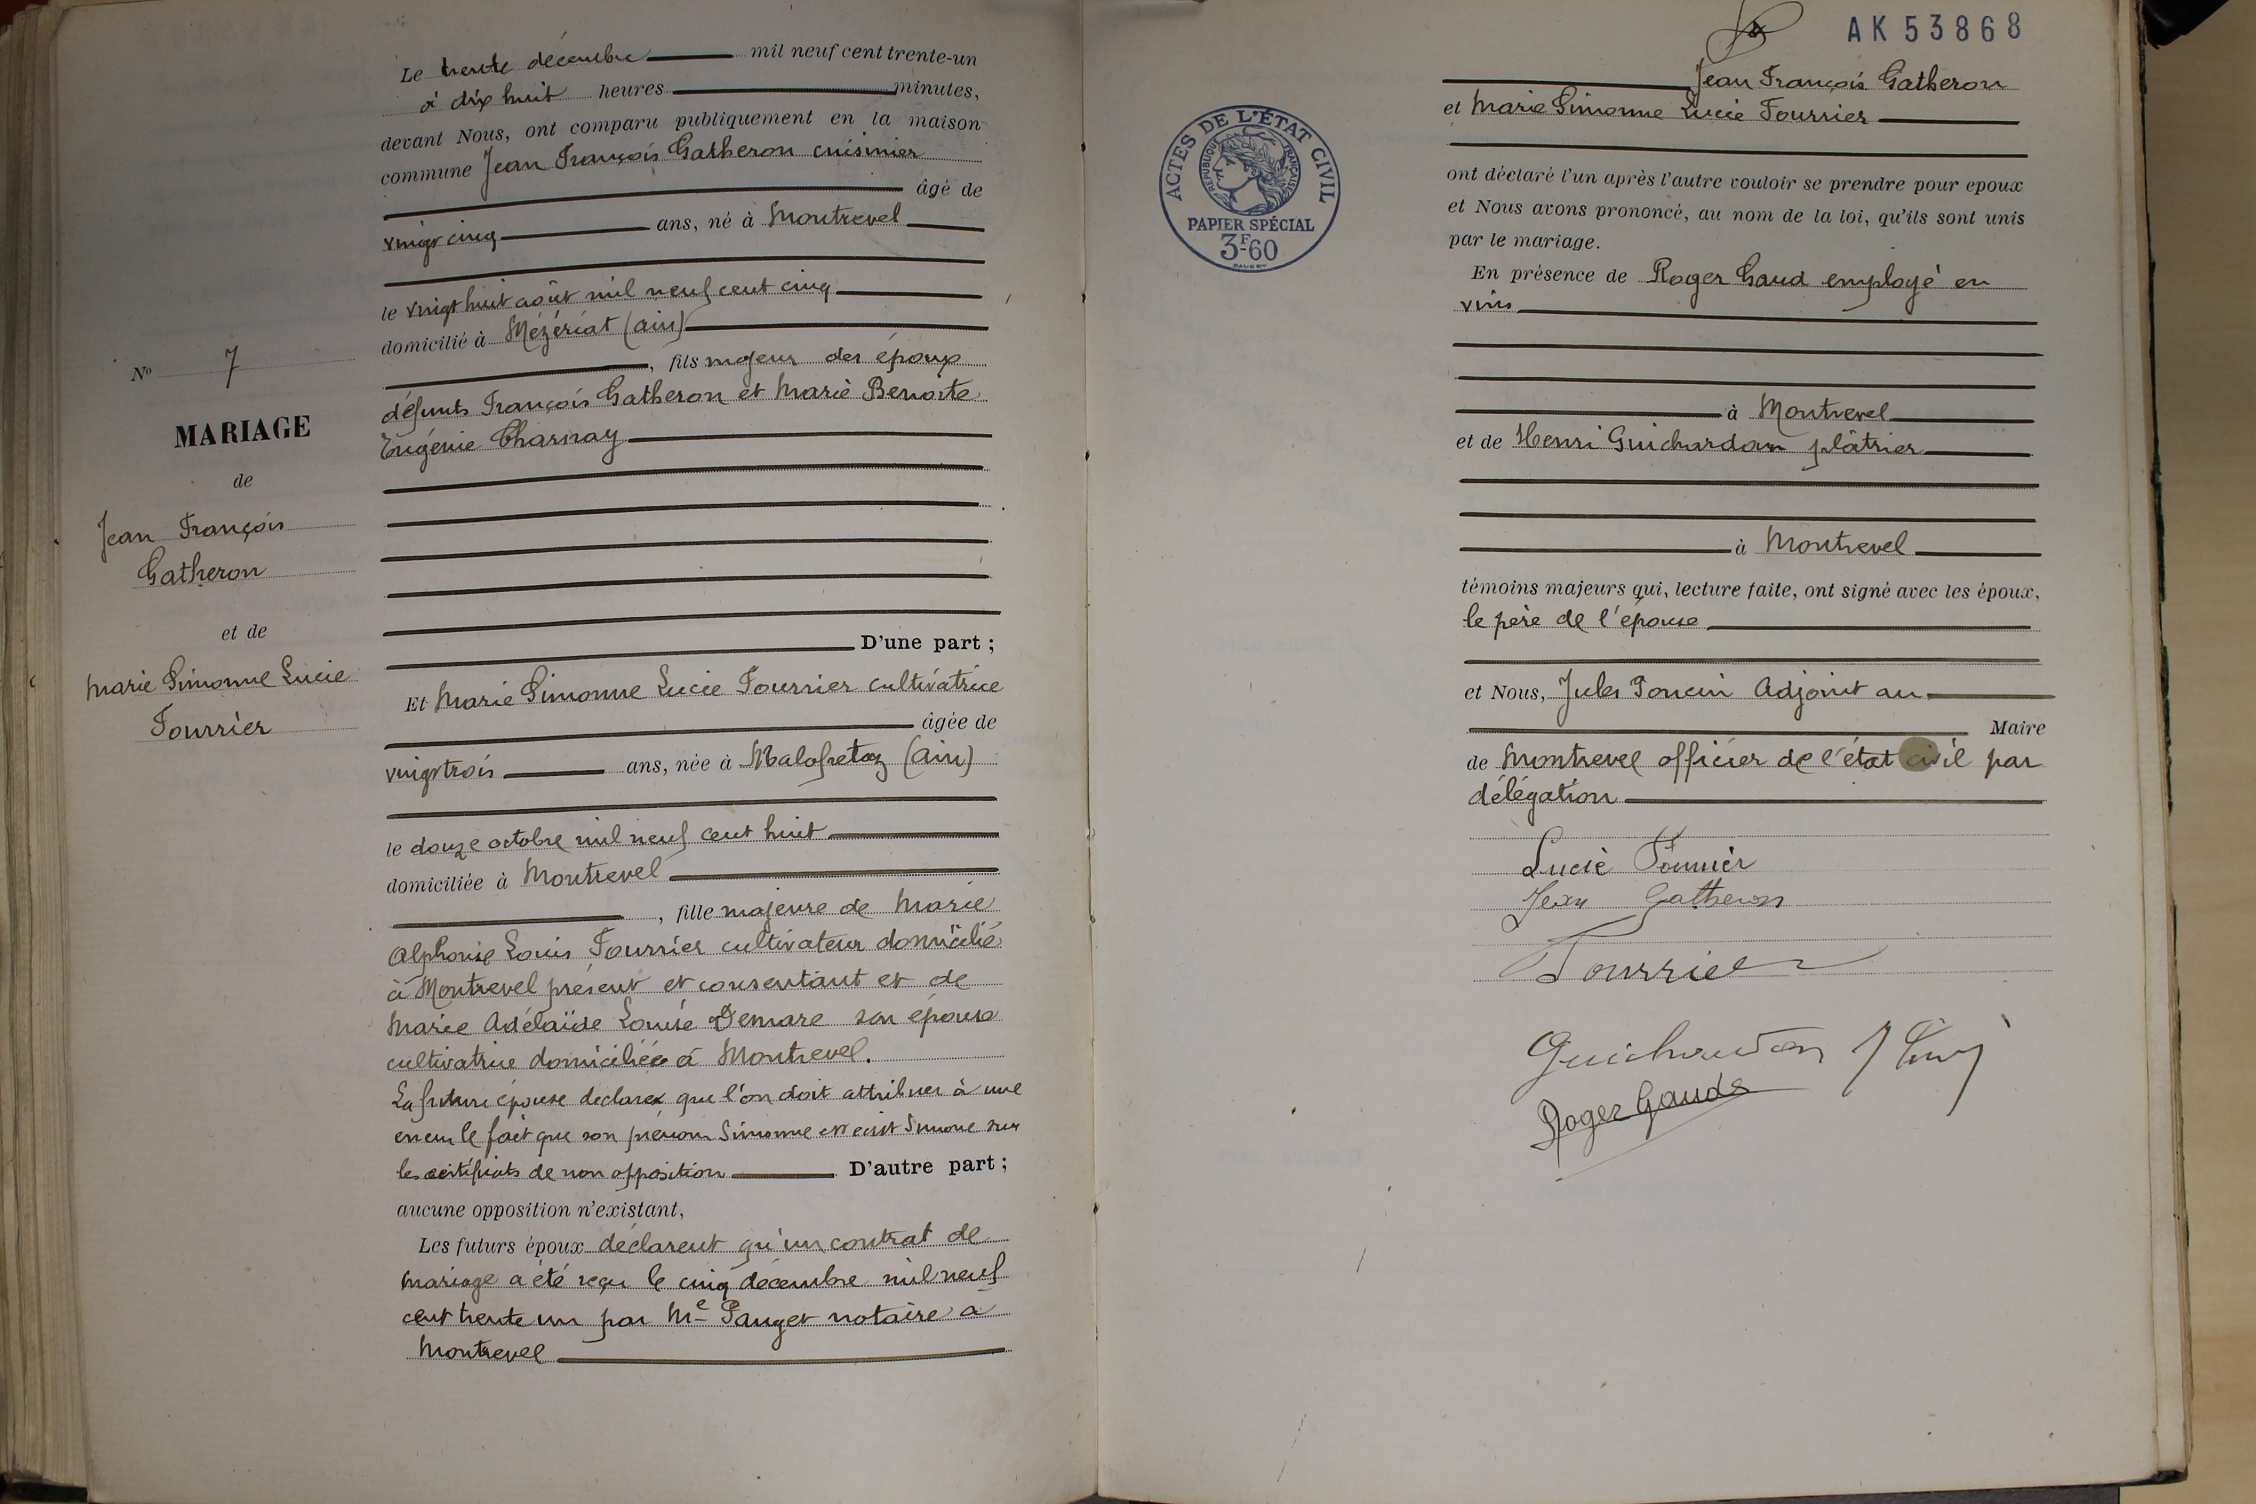 Le trente décembre mil neuf cent trente-un
à dix huit heures minutes,
devant Nous, ont comparu publiquement en la maison
commune Jean François Gatheron cuisinier
âgé de
vingt cinq ans, né à Montrevel
le vingt huit août mil neuf cent cinq
domicilié à Mézériat (ain)
, fils majeur des époux
défunts François Gatheron et Marie Benoite
Eugénie Charnay
D'une part ;
Et Marie Simonne Lucie Fourrier cultivatrice
âgée de
vingt trois ans, née à Malafretaz (Ain)
le douze octobre mil neuf cent huit
domiciliée à Montrevel
, fille majeure de Marie
Alphonse Louis Fourrier cultivateur domicilié
à Montrevel présent et consentant et de
Marie Adélaïde Louise Demare son épouse
cultivatrice domiciliée à Montrevel.
La future épouse déclare que l'on doit attribuer à une
erreur le fait que son prénom Simonne est écrit Simone sur
les certificats de non opposition D'autre part ;
aucune opposition n'existant,
Les futurs époux déclarent qu'un contrat de
mariage a été reçu le cinq décembre mil neuf
cent trente un par Me Pauget notaire à
Montrevel
No 7
MARIAGE
de
Jean François
Gatheron
et de
Marie Simonne Lucie
Fourrier
AK 53868
ACTES DE L'ÉTAT CIVIL
RÉPUBLIQUE FRANÇAISE
PAPIER SPÉCIAL
3F60
Jean François Gatheron
et Marie Simonne Lucie Fourrier
ont déclaré l'un après l'autre vouloir se prendre pour epoux
et Nous avons prononcé, au nom de la loi, qu'ils sont unis
par le mariage.
En présence de Roger Gaud employé en
vins
à Montrevel
et de Henri Guichardan plâtrier
à Montrevel
témoins majeurs qui, lecture faite, ont signé avec les époux,
le père de l'épouse
et Nous, Jules Poncin Adjoint au
Maire
de Montrevel officier de l'état civil par
délégation
Lucie Fourrier
Jean Gatheron
Fourrier
Guichardan
Roger Gauds